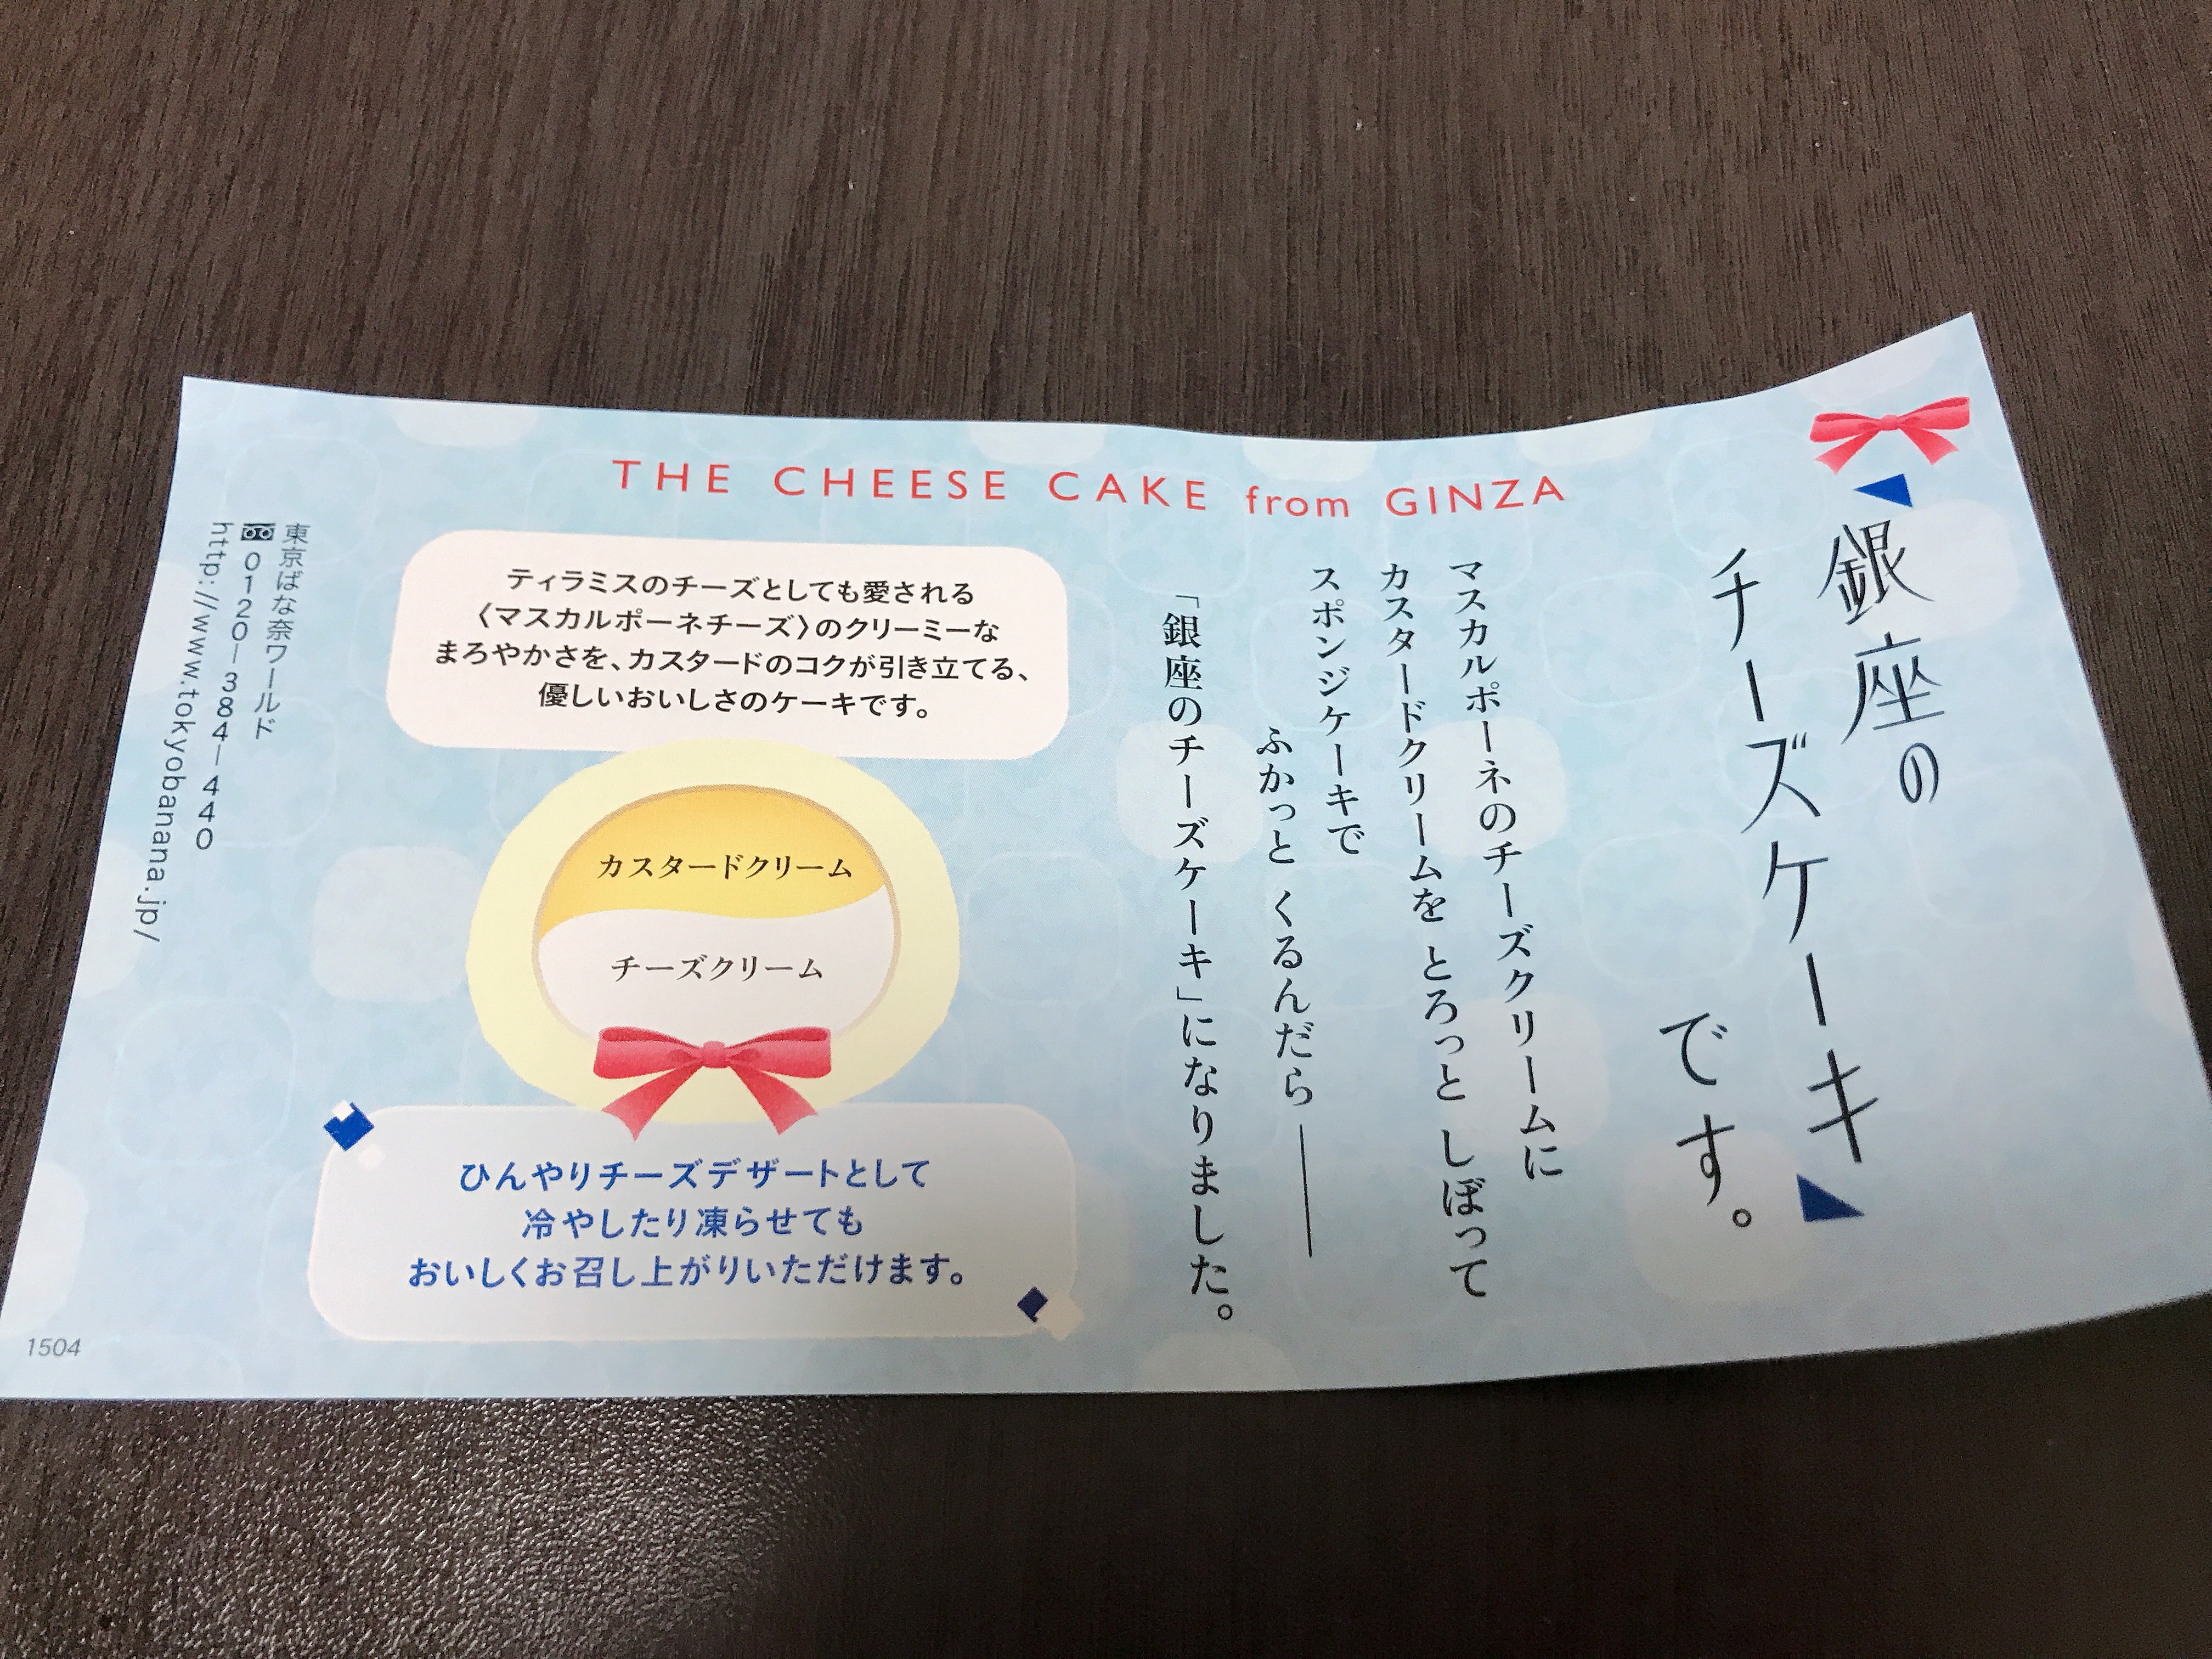 THE CHEESE CAKE from GINZA
銀座の
チーズケーキ
です。
マスカルポーネのチーズクリームに
カスタードクリームを とろっと しぼって
スポンジケーキで
ふかっと くるんだら——
「銀座のチーズケーキ」になりました。
ティラミスのチーズとしても愛される
〈マスカルポーネチーズ〉のクリーミーな
まろやかさを、カスタードのコクが引き立てる、
優しいおいしさのケーキです。
カスタードクリーム
チーズクリーム
ひんやりチーズデザートとして
冷やしたり凍らせても
おいしくお召し上がりいただけます。
東京ばな奈ワールド
0120-384-440
http://www.tokyobanana.jp/
1504